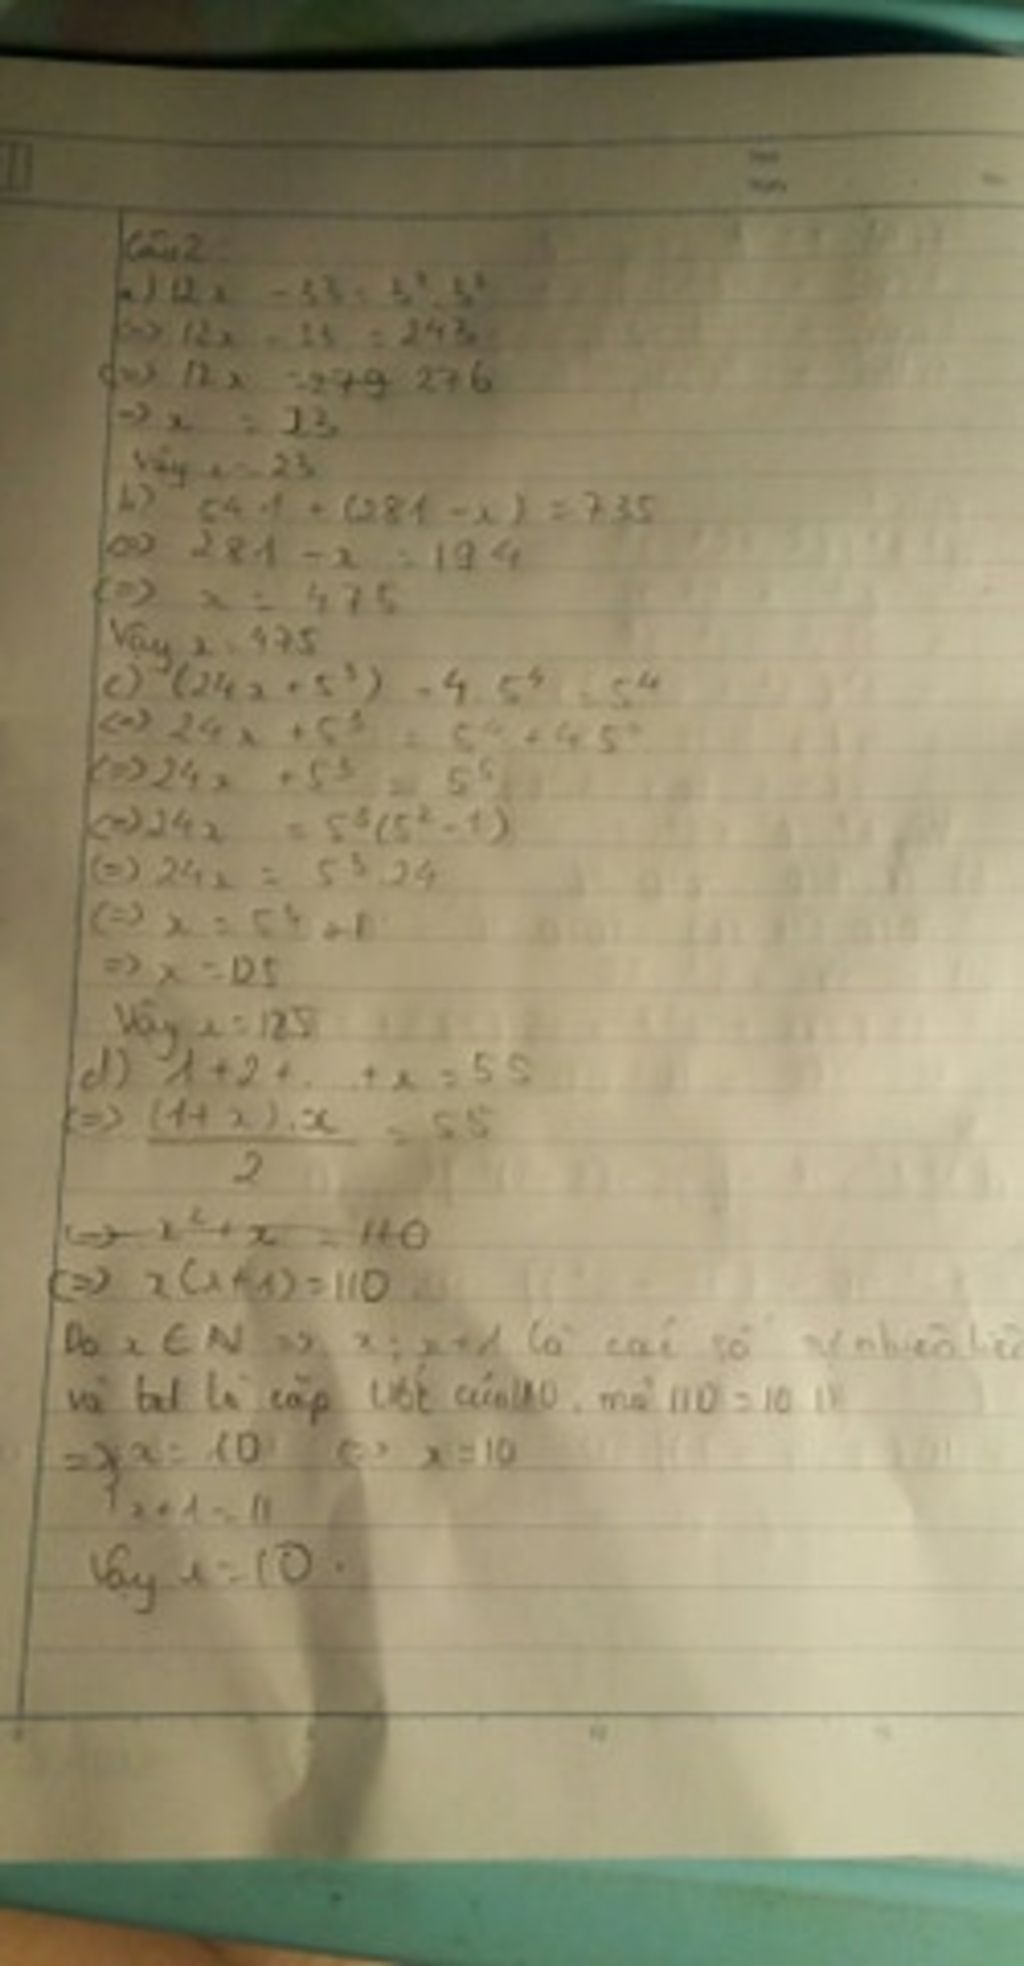 Câu 2
a) 12x - 33 = 3² . 3³
<=> 12x - 33 = 243
<=> 12x = 279 276
=> x = 23
Vậy x = 23
b) 541 + (281 - x) = 735
<=> 281 - x = 194
<=> x = 475
Vậy x = 475
c) (24x + 5³) - 4 . 5⁴ = 5⁴
<=> 24x + 5³ = 5⁴ + 4 5⁴
<=> 24x + 5³ = 5⁵
<=> 24x = 5³(5² - 1)
<=> 24x = 5³ . 24
<=> x =
=> x = 125
Vậy x = 125
d) 1 + 2 + . . + x = 55
<=> (1 + x) . x / 2 = 55
<=> x² + x = 110
<=> x(x + 1) = 110
Do x ∈ N => x ; x + 1 là các số tự nhiên
và là cặp của 110 . mà 110 = 10 . 11
=> { x = 10 <=> x = 10
x + 1 = 11
Vậy x = 10 .